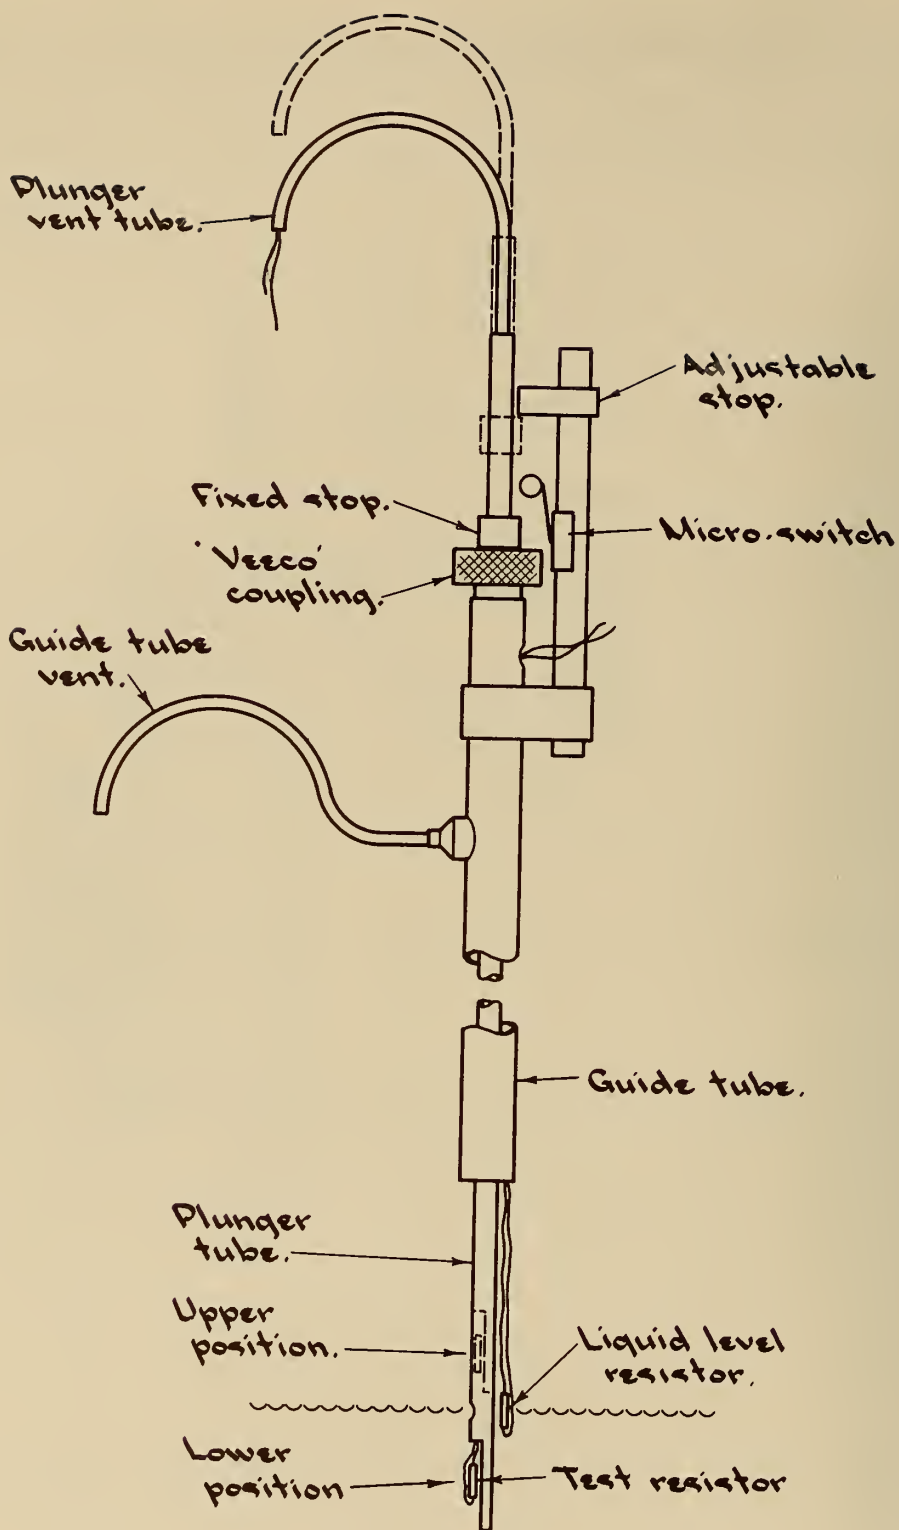 Plunger
vent tube.
Adjustable
stop.
Fixed stop.
Micro-switch
'Veeco'
coupling.
Guide tube
vent.
Guide tube.
Plunger
tube.
Upper
position.
Liquid level
resistor.
Lower
position
Test resistor